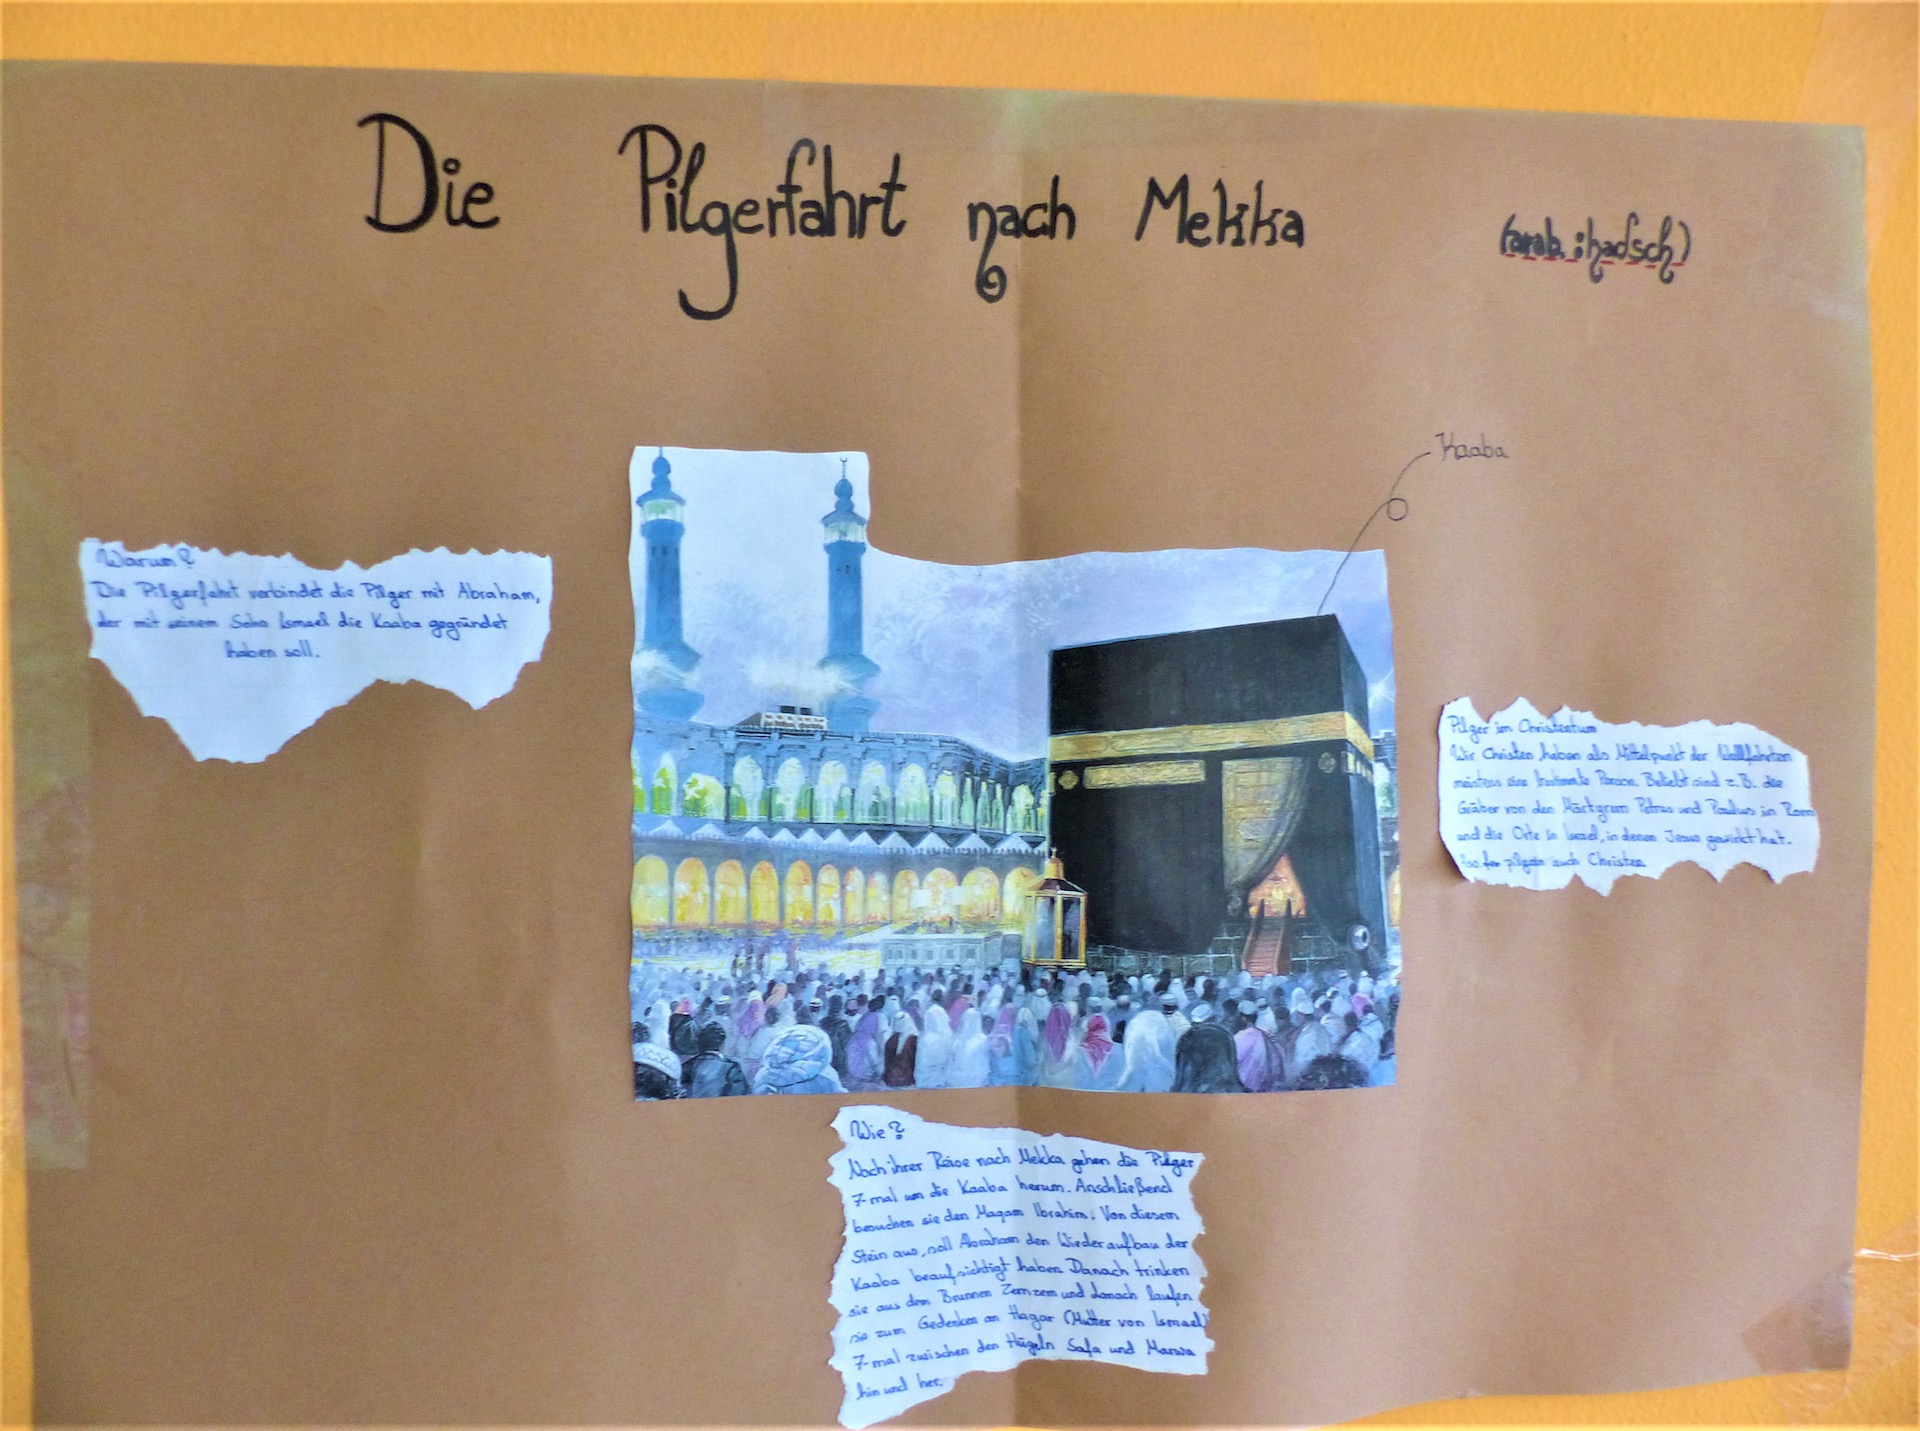 Die Pilgerfahrt nach Mekka (arab.:hadsch)
Kaaba
Warum?
Die Pilgerfahrt verbindet die Pilger mit Abraham,
der mit seinem Sohn Ismael die Kaaba gegründet
haben soll.
Pilger im Christentum
Wir Christen haben als Mittelpunkt der Wallfahrten
meistens eine bestimmte Person. Beliebt sind z.B. die
Gräber von den Märtyrern Petrus und Paulus in Rom
und die Orte in Israel, in denen Jesus gewirkt hat.
Also pilgern auch Christen
Wie?
Nach ihrer Reise nach Mekka gehen die Pilger
7-mal um die Kaaba herum. Anschließend
besuchen sie den Maqam Ibrahim. Von diesem
Stein aus, soll Abraham den Wiederaufbau der
Kaaba beaufsichtigt haben. Danach trinken
sie aus dem Brunnen Zemzem und danach laufen
sie zum Gedenken an Hagar (Mutter von Ismael)
7-mal zwischen den Hügeln Safa und Marwa
hin und her.